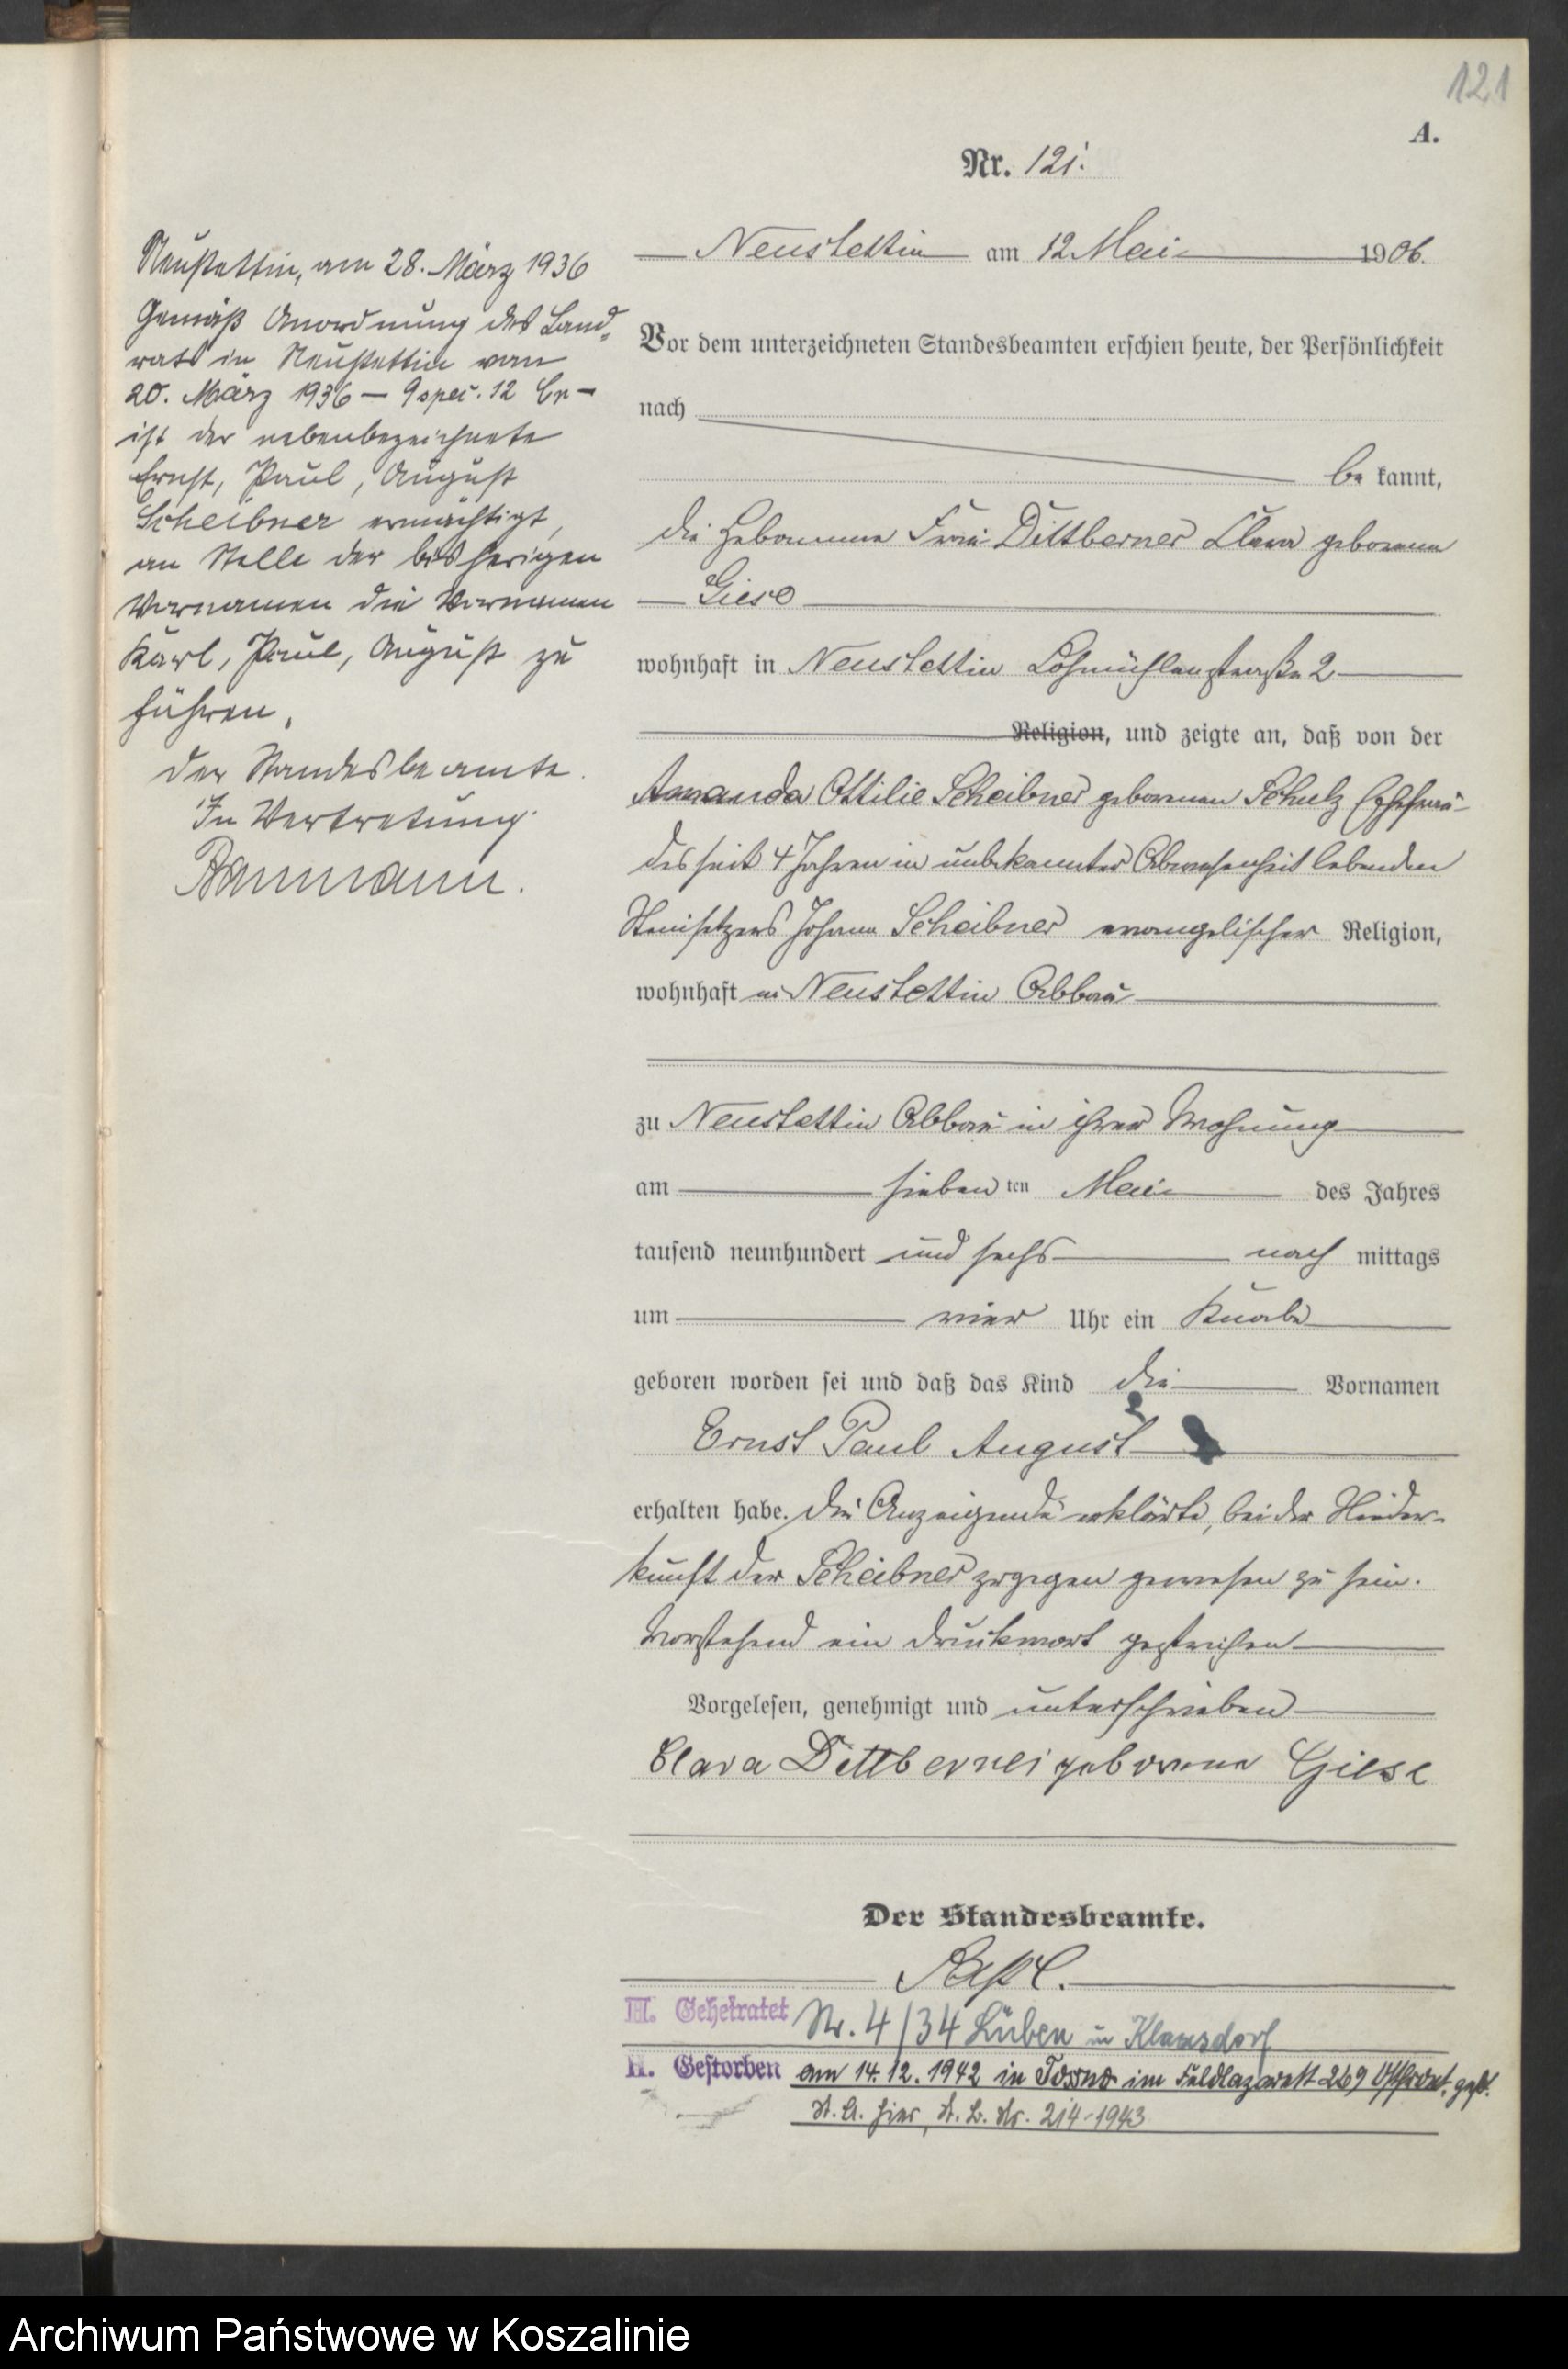 121
A.
Nr. 121.
Neustettin am 12 Mai 1906.
Vor dem unterzeichneten Standesbeamten erschien heute, der Persönlichkeit
nach
be kannt,
die Hebamme Frau Dittberner Clara geborene
Giese
wohnhaft in Neustettin Lohmühlenstraße 2
Religion, und zeigte an, daß von der
Amanda Ottilie Scheibner geborenen Schulz Ehefrau
des seit 4 Jahren in unbekannter Abwesenheit lebenden
Steinsetzers Johann Scheibner evangelischer Religion,
wohnhaft in Neustettin Abbau
zu Neustettin Abbau in ihrer Wohnung
am sieben ten Mai des Jahres
tausend neunhundert und sechs nach mittags
um vier Uhr ein Knabe
geboren worden sei und daß das Kind die Vornamen
Ernst Paul August
erhalten habe. Die Anzeigende erklärte, bei der Nieder-
kunft der Scheibner zugegen gewesen zu sein.
Vorstehend ein Druckwort gestrichen
Vorgelesen, genehmigt und unterschrieben
Clara Dittberner geborene Giese
Der Standesbeamte.
H. Geheiratet Nr. 4/34 Lüben in Klausdorf
H. Gestorben am 14.12.1942 in Tossno im Feldlazarett 269
St. A. hier, St. B. Nr. 214-1943
Neustettin, am 28. März 1936
Gemäß Anordnung des Land-
rats in Neustettin vom
20. März 1936 — 12
ist der nebenbezeichnete
Ernst, Paul, August
Scheibner ermächtigt,
an Stelle der bisherigen
Vornamen die Vornamen
Karl, Paul, August zu
führen.
Der Standesbeamte.
In Vertretung.
Archiwum Państwowe w Koszalinie